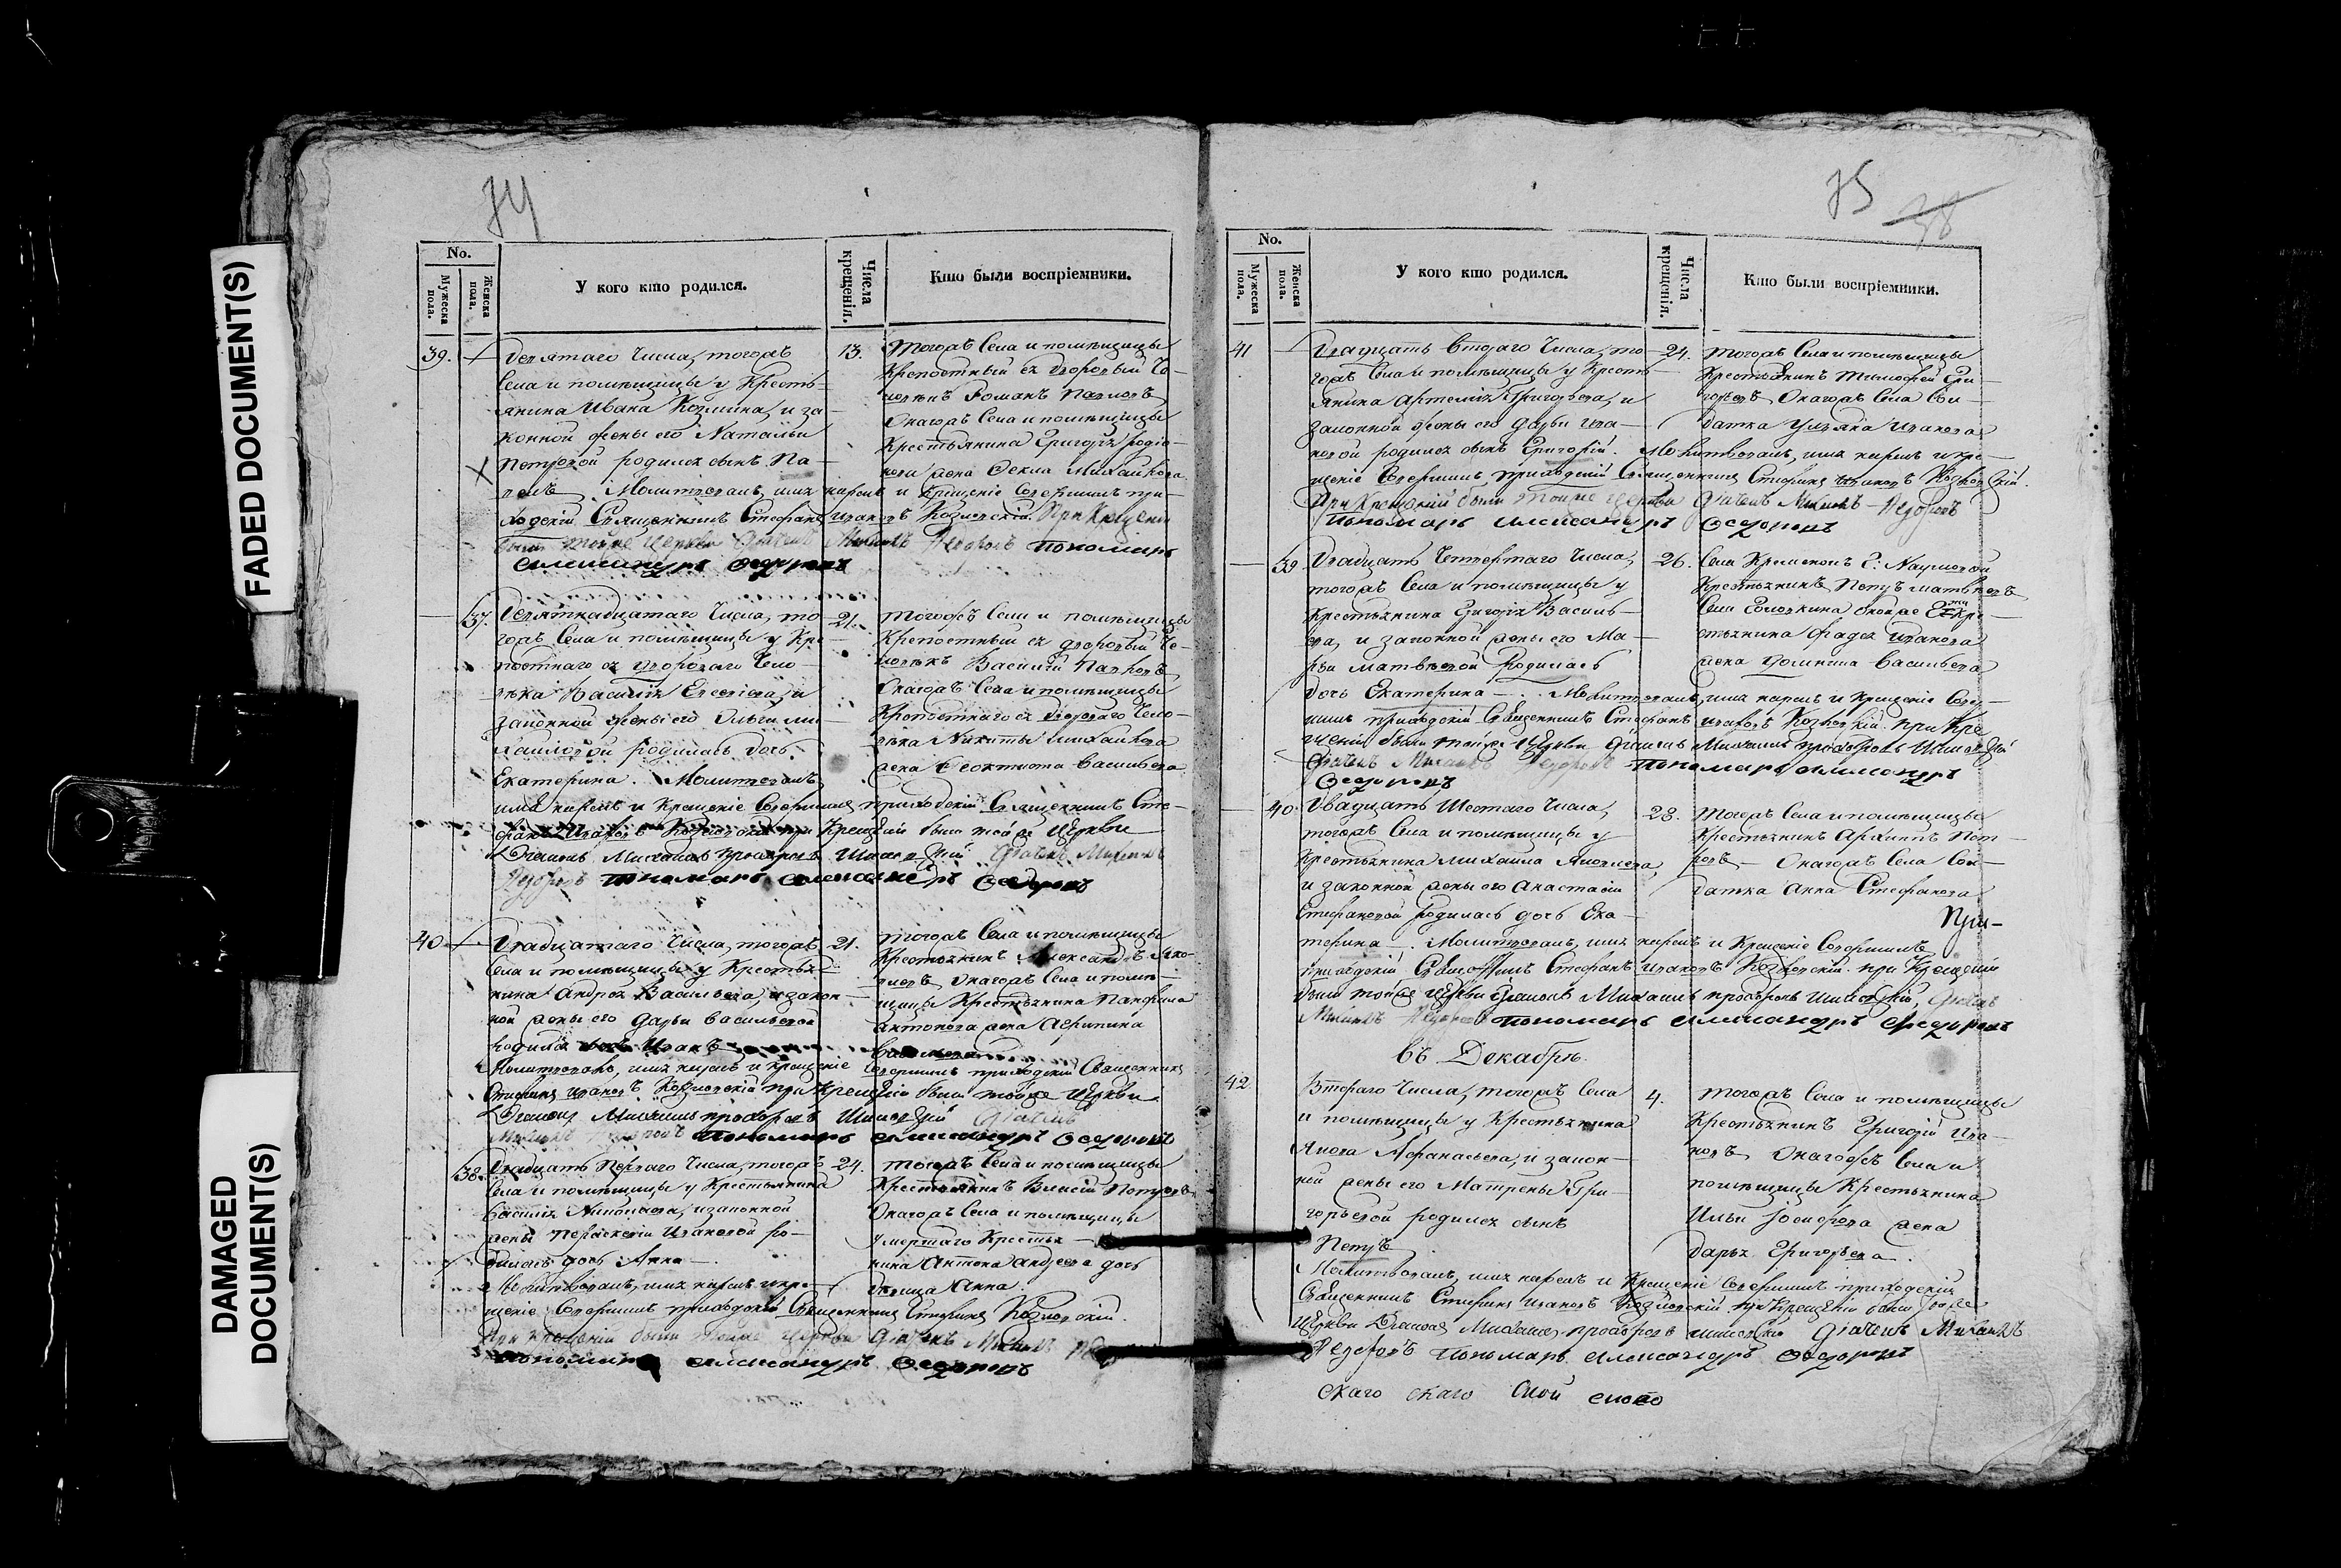 FADED DOCUMENT(S)
DAMAGED
DOCUMENT(S)
74
No.
Мужеска пола.
Женска пола.
У кого кто родился.
Числа крещенія.
Кто были воспріемники.
39.
Девятаго Числа, тогожъ
Села и помѣщицы у Кресть-
янина Ивана Козмина, и за-
конной жены его Натальи
Петровой родился сынъ Па-
велъ. Молитвовалъ, имя нарекъ и Крещеніе Совершилъ при-
ходскій Священникъ Стефанъ Ивановъ Козловскій. При Крещеніи
были тойже Церкви Діаконъ Михаилъ Федоровъ Пономарь
Александръ Федоровъ
13.
Тогожъ Села и помѣщицы
Крепостный его дворовый Че-
ловѣкъ Романъ Павловъ
Онагожъ Села и помѣщицы
Крестьянина Григорія Родіо-
нова жена Фекла Михайлова
37.
Девятнадцатаго Числа, то-
гожъ Села и помѣщицы у Кре-
постнаго ея Двороваго Чело-
вѣка Василія Елисѣева, и
законной жены его Ольги Ми-
хайловой родилась дочь
Екатерина. Молитвовалъ
имя нарекъ и Крещеніе Совершилъ приходскій Священникъ Сте-
фанъ Ивановъ Козловскій при Крещеніи были тойже Церкви
Діаконъ Михаилъ Прохоровъ Діаконъ Михаилъ
Федоровъ Пономарь Александръ Федоровъ
21.
Тогожъ Села и помѣщицы
Крепостный ея дворовый Че-
ловѣкъ Василій Павловъ
Онагожъ Села и помѣщицы
Крепостнаго ея Двороваго Чело-
вѣка Никиты Михайлова
жена Феоктиста Васильева
40
Двадцатаго Числа, тогожъ
Села и помѣщицы у Кресть-
янина Андрея Васильева, и закон-
ной жены его Дарьи Васильевой
родился Иванъ
Молитвовалъ, имя нарекъ и крещеніе Совершилъ приходскій Священникъ
Стефанъ Ивановъ Козловскій при Крещеніи были тойже Церкви
Діаконъ Михаилъ Прохоровъ Діаконъ
Михаилъ Федоровъ Пономарь Александръ Федоровъ
21.
Тогожъ Села и помѣщицы
Крестьянинъ Александръ Яко-
влевъ Онагожъ Села и помѣ-
щицы Крестьянина Панфила
Антонова жена Афимина
Васильева
38.
Двадцать Перваго Числа, тогожъ
Села и помѣщицы у Крестьянина
Василія Николаева, и законной
жены Параскевіи Ивановой ро-
дилась дочь Анна
Молитвовалъ, имя нарекъ и кре-
щеніе Совершилъ приходскій Священникъ Стефанъ Козловскій.
При крещеніи были тойже Церкви Діаконъ Михаилъ
Пономарь Александръ Федоровъ
24.
Тогожъ Села и помѣщицы
Крестьянинъ Власій Петровъ
Онагожъ Села и помѣщицы
умершаго Кресть-
янина Антона Андреева дочь
дѣвица Анна
75
38
No.
Мужеска пола.
Женска пола.
У кого кто родился.
Числа крещенія.
Кто были воспріемники.
41
Двадцать Втораго Числа, то-
гожъ Села и помѣщицы у Кресть-
янина Артемія Григорьева, и
законной жены его Дарьи Ива-
новой родился сынъ Григорій. Молитвовалъ, имя нарекъ и кре-
щеніе Совершилъ приходскій Священникъ Стефанъ Ивановъ Козловскій.
При Крещеніи были тойже Церкви Діаконъ Михаилъ Федоровъ
Пономарь Александръ Федоровъ
24.
Тогожъ Села и помѣщицы
Крестьянинъ Тимофей Гри-
горьевъ Онагожъ Села Сол-
датка Ульяна Иванова
39
Двадцать Четвертаго Числа,
тогожъ Села и помѣщицы у
Крестьянина Григорія Василь-
ева, и законной жены его Ма-
рьи Матвѣевой Родилась
дочь Екатерина. Молитвовалъ, имя нарекъ и Крещеніе Совер-
шилъ приходскій Священникъ Стефанъ Ивановъ Козловскій. при Кре-
щеніи были тойже Церкви Діаконъ Михаилъ Прохоровъ
Діаконъ Михаилъ Федоровъ Пономарь Александръ
Федоровъ
26.
Села Г: Наумовой
Крестьянинъ Петръ Матвѣевъ
Села кре-
стьянина Фадея Иванова
жена Васильева
40
Двадцать Шестаго Числа,
тогожъ Села и помѣщицы у
Крестьянина Михаила Яковлева,
и законной жены его Анастасіи
Стефановой родилась дочь Ека-
терина. Молитвовалъ, имя нарекъ и Крещеніе Совершилъ
приходскій Священникъ Стефанъ Ивановъ Козловскій. при Крещеніи
были тойже Церкви Діаконъ Михаилъ Прохоровъ Діаконъ
Михаилъ Федоровъ Пономарь Александръ Федоровъ
28.
Тогожъ Села и помѣщицы
Крестьянинъ Архипъ Пет-
ровъ Онагожъ Села Сол-
датка Анна Стефанова
При-
въ Декабрѣ.
42
Втораго Числа, тогожъ Села
и помѣщицы у Крестьянина
Якова Афанасьева, и закон-
ной жены его Матрены Гри-
горьевой родился сынъ
Петръ
Молитвовалъ, имя нарекъ и Крещеніе Совершилъ приходскій
Священникъ Стефанъ Ивановъ Козловскій при Крещеніи были тойже
Церкви Діаконъ Михаилъ Прохоровъ Діаконъ Михаилъ
Федоровъ Пономарь Александръ Федоровъ
4.
Тогожъ Села и помѣщицы
Крестьянинъ Григорій Ива-
новъ Онагожъ Села и
помѣщицы Крестьянина
Ильи Іосифова жена
Дарья Григорьева.
скаго скаго ской